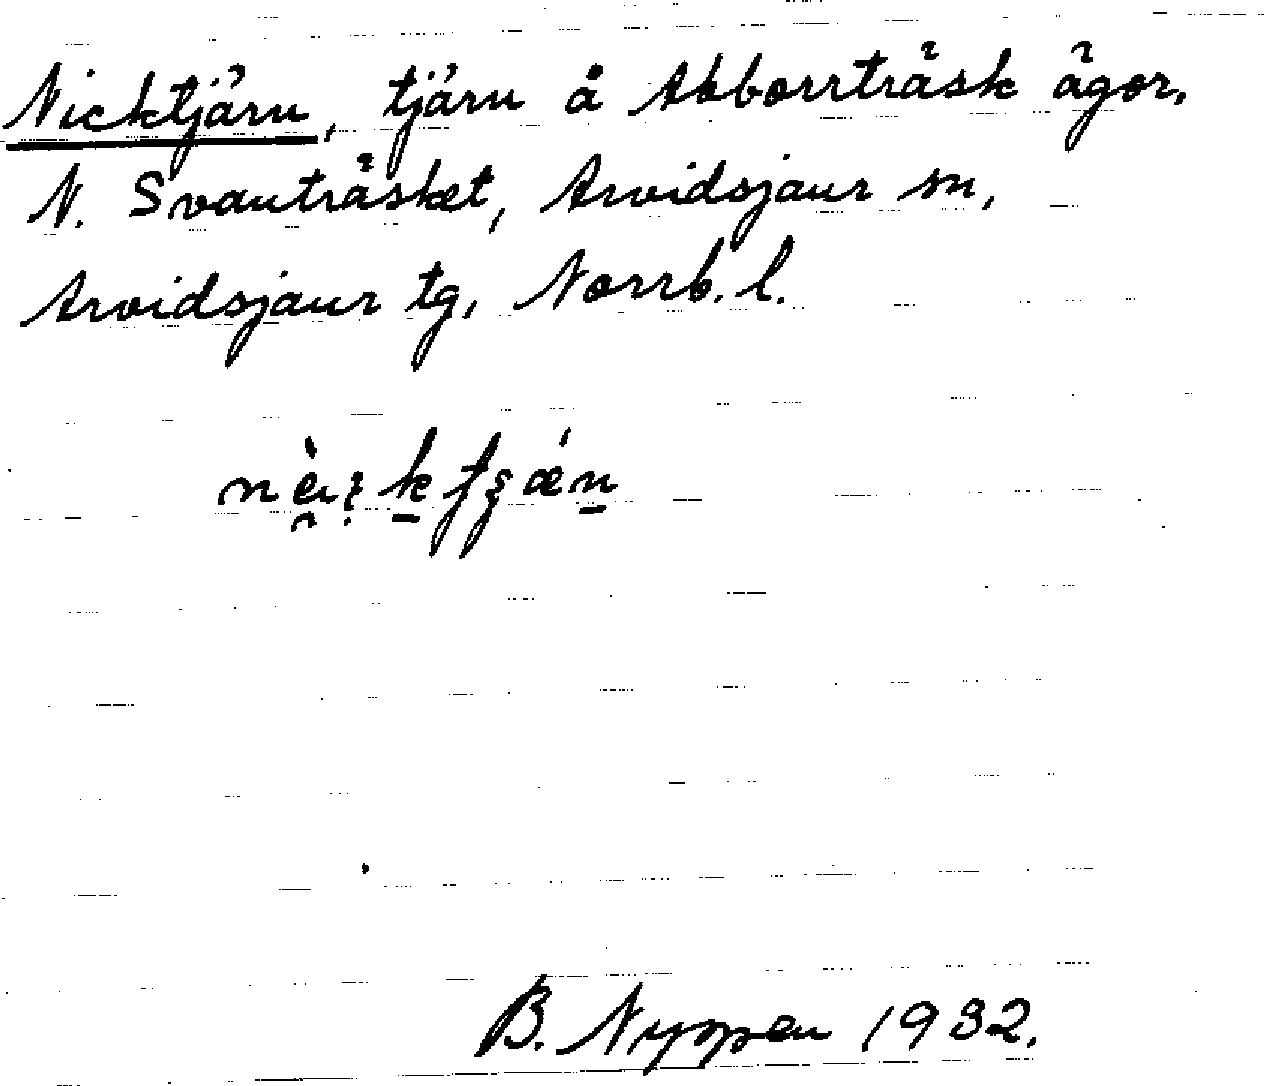 Nicktjärn, tjärn å Abborrträsk ägor,
N. Svanträsket, Arvidsjaur sn,
Arvidsjaur tg, Norrb. l.
B. Nyppen 1932.